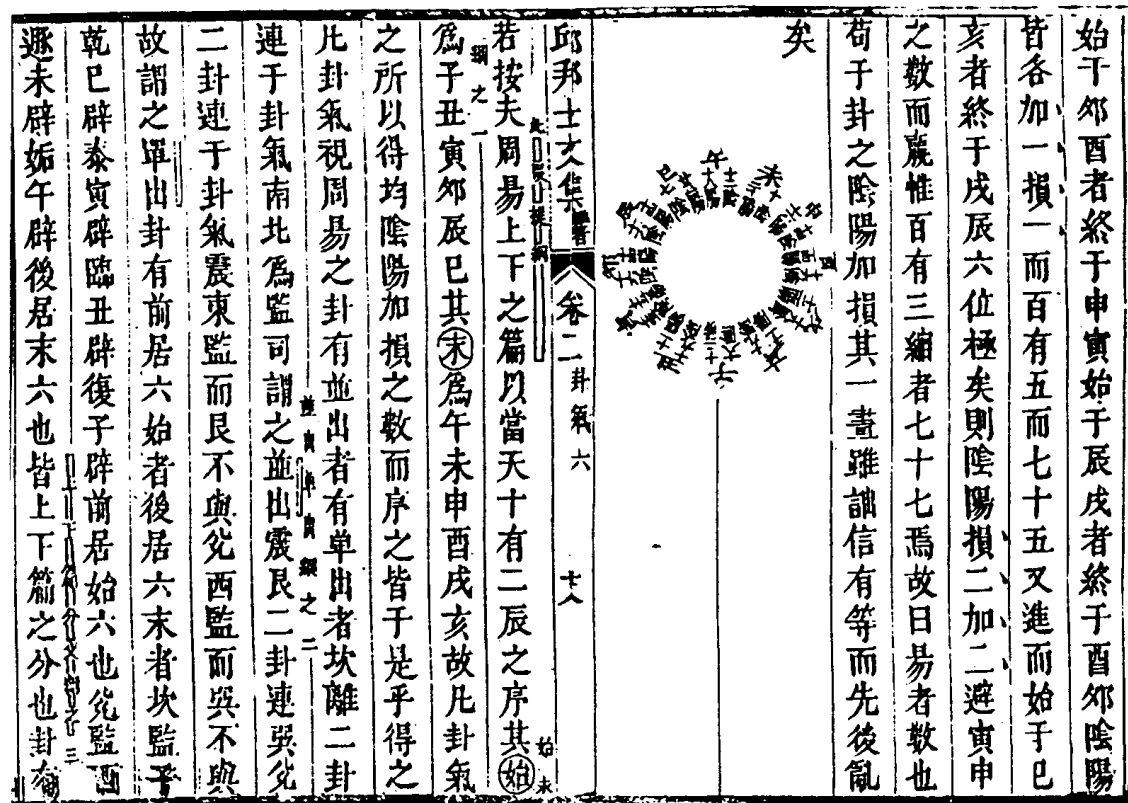 始于夘酉者終于申寅始于辰戌者終于酉夘陰陽
皆各加一損一而百有五而七十五又進而始于巳
亥者終于戌辰六位極矣則陰陽損二加二避寅申
之數而嬴惟百有三縮者七十七焉故曰易者數也
苟于卦之陰陽加損其一晝雖詘信有等而先後亂
矣
邱邦士文集
卷二
卦氣六
十八
若按夫周易上下之篇以當天十有二辰之序其始
始末
綱之一
爲子丑寅夘辰巳其末爲午未申酉戌亥故凡卦氣
之所以得均陰陽加損之數而序之皆于是乎得之
凡卦氣視周易之卦有並出者有单出者坎離二卦
並出单出綱之二
連于卦氣南北爲監司謂之並出震艮二卦連巽兌
二卦連于卦氣震東監而艮不與兌西監而巽不與
故謂之單出卦有前居六始者後居六末者坎監子
乾巳辟泰寅辟臨丑辟復子辟前居始六也兌監酉
遯未辟姤午辟後居末六也皆上下篇之分也卦有